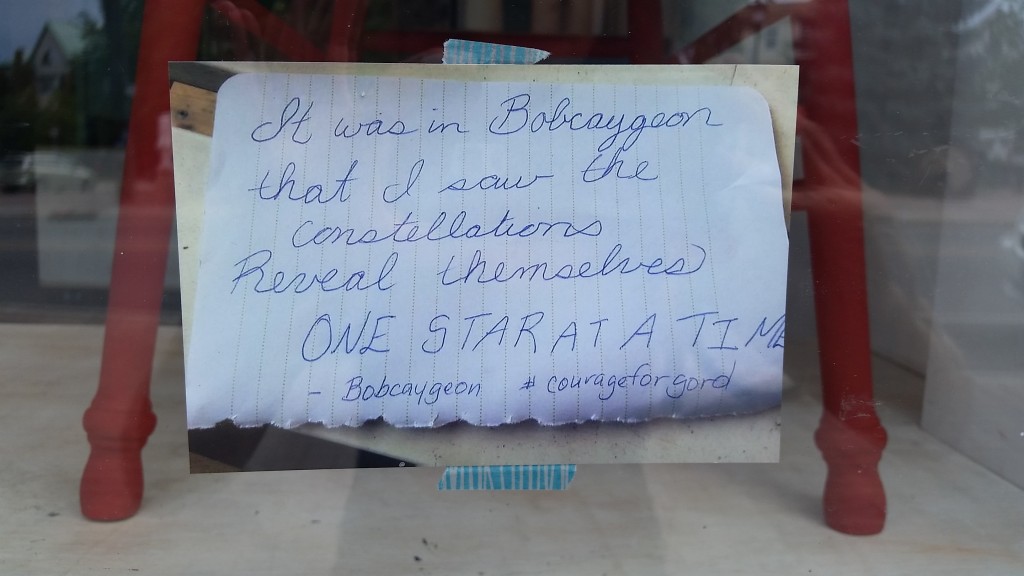 It was in Bobcaygeon
that I saw the
constellations
Reveal themselves
ONE STAR AT A TIME
- Bobcaygeon #courageforgord